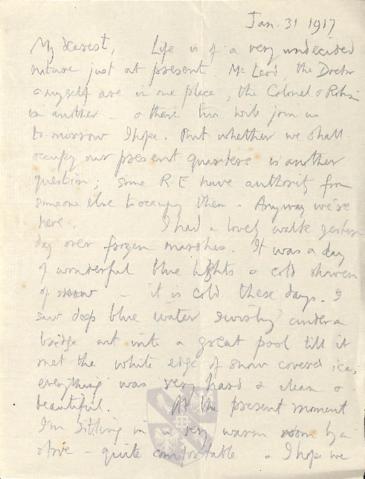 Jan. 31 1917
My dearest, Life is of a very undecided
nature just at present. McLeod, the Doctor
& myself are in one place, the Colonel &
in another - & these two will join us
tomorrow I hope. But whether we shall
occupy our present quarters is another
question; some R E have authority from
someone else to occupy them. Anyway we're
here. I had a lovely walk yester-
day over frozen marshes. It was a day
of wonderful blue lights & cold showers
of snow - it is cold these days. I
saw deep blue water swirling under a
bridge out into a great pool till it
met the white edge of snow covered ice,
everything was very hard & clean &
beautiful. At the present moment
I'm sitting in a very warm room by a
stove - quite comfortable. I hope we